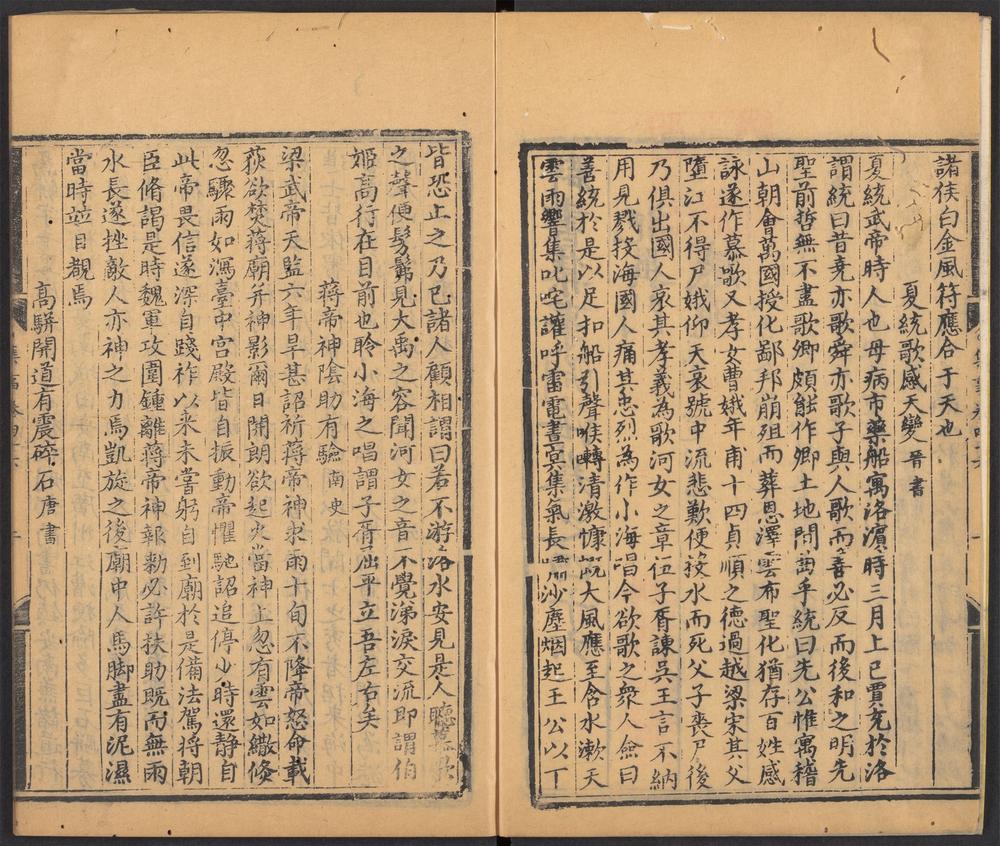 諸侯白金風符應合于天也
夏統歌感天變 晉書
夏統武帝時人也母病市藥船寓洛濱時三月上巳賈充於洛
謂統曰昔堯亦歌舜亦歌子與人歌而善必反而後和之明先
聖前哲無不盡歌卿頗能作卿土地間曲乎統曰先公惟寓稽
山朝會萬國授化鄙邦崩殂而葬恩澤雲布聖化猶存百姓感
詠遂作慕歌又孝女曹娥年甫十四貞順之德過越梁宋其父
墮江不得尸娥仰天哀號中流悲歎便投水而死父子喪尸後
乃俱出國人哀其孝義為歌河女之章伍子胥諫吳王言不納
用見戮投海國人痛其忠烈為作小海唱今欲歌之衆人僉曰
善統於是以足扣船引聲喉囀清激慷慨大風應至含水漱天
雲雨響集叱咤讙呼雷電晝冥集氣長嘯沙塵烟起王公以下
皆恐止之乃已諸人顧相謂曰若不游洛水安見是人聽慕歌
之聲便髣髴見大禹之容聞河女之音不覺涕淚交流即謂伯
姬高行在目前也聆小海之唱謂子胥屈平立吾左右矣
蔣帝神陰助有驗 南史
梁武帝天監六年旱甚詔祈蔣帝神求雨十旬不降帝怒命載
荻欲焚蔣廟并神影爾日開朗欲起火當神上忽有雲如繖倏
忽驟雨如瀉臺中宮殿皆自振動帝懼馳詔追停少時還靜自
此帝畏信遂深自踐祚以來未嘗躬自到廟於是備法駕將朝
臣脩謁是時魏軍攻圍鍾離蔣帝神報勑必許扶助既而無雨
水長遂挫敵人亦神之力焉凱旋之後廟中人馬脚盡有泥濕
當時竝目覩焉
高駢開道有震碎石 唐書